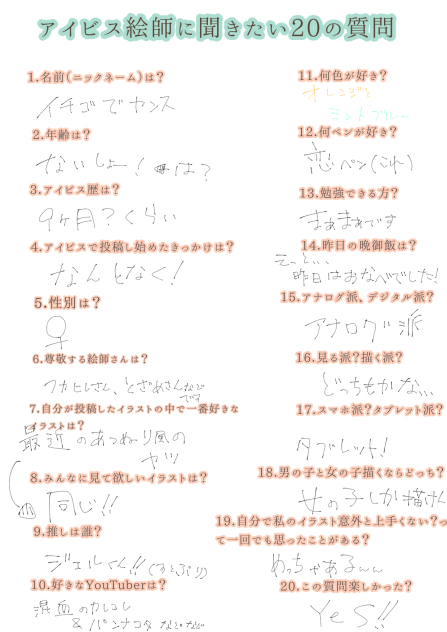 アイビス絵師に聞きたい20の質問
1.名前(ニックネーム)は?
イチゴでカンス
2.年齢は?
ないしょー!
は?
3.アイビス歴は?
9ヶ月?くらい
4.アイビスで投稿し始めたきっかけは?
なんとなく!
5.性別は?
♀
6.尊敬する絵師さんは?
フカヒレさん、とざめさんなど
です
7.自分が投稿したイラストの中で一番好きな
イラストは?
最近のあつねり風の
ヤツ
8.みんなに見て欲しいイラストは?
同じ!!
9.推しは誰?
ジェルくん!!(すとぷり)
10.好きなYouTuberは?
混血のカレコレ
&パンナコタなどなど
11.何色が好き?
オレンジと
ミントブルー
12.何ペンが好き?
恋ペン(これ)
13.勉強できる方?
まあまあです
14.昨日の晩御飯は?
えっと、、、
昨日はおなべでした!
15.アナログ派、デジタル派?
アナログ派
16.見る派?描く派?
どっちもかな、、、
17.スマホ派?タブレット派?
タブレット!
18.男の子と女の子描くならどっち?
女の子しか描けん
19.自分で私のイラスト意外と上手くない?っ
て一回でも思ったことがある?
めっちゃあるんん
20.この質問楽しかった?
YeS!!